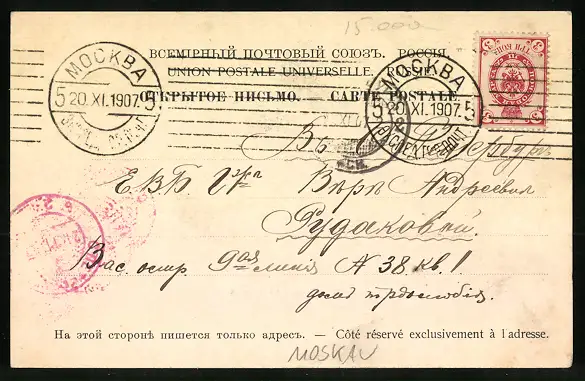 15.000
ВСЕМІРНЫЙ ПОЧТОВЫЙ СОЮЗЪ. РОССІЯ.
UNION POSTALE UNIVERSELLE. RUSSIE.
ОТКРЫТОЕ ПИСЬМО. — CARTE POSTALE.
МОСКВА
5 20.XI.1907. 5
МОСКВА
5 20.XI.1907. 5
ТРИ КОП.
Въ С. Петербургъ
Е.В.Б. Вѣрѣ Андреевнѣ
Рудаковой.
Вас. остр. 9ая линія № 38. кв. 1
На этой сторонѣ пишется только адресъ. — Côté réservé exclusivement à l'adresse.
MOSKAU